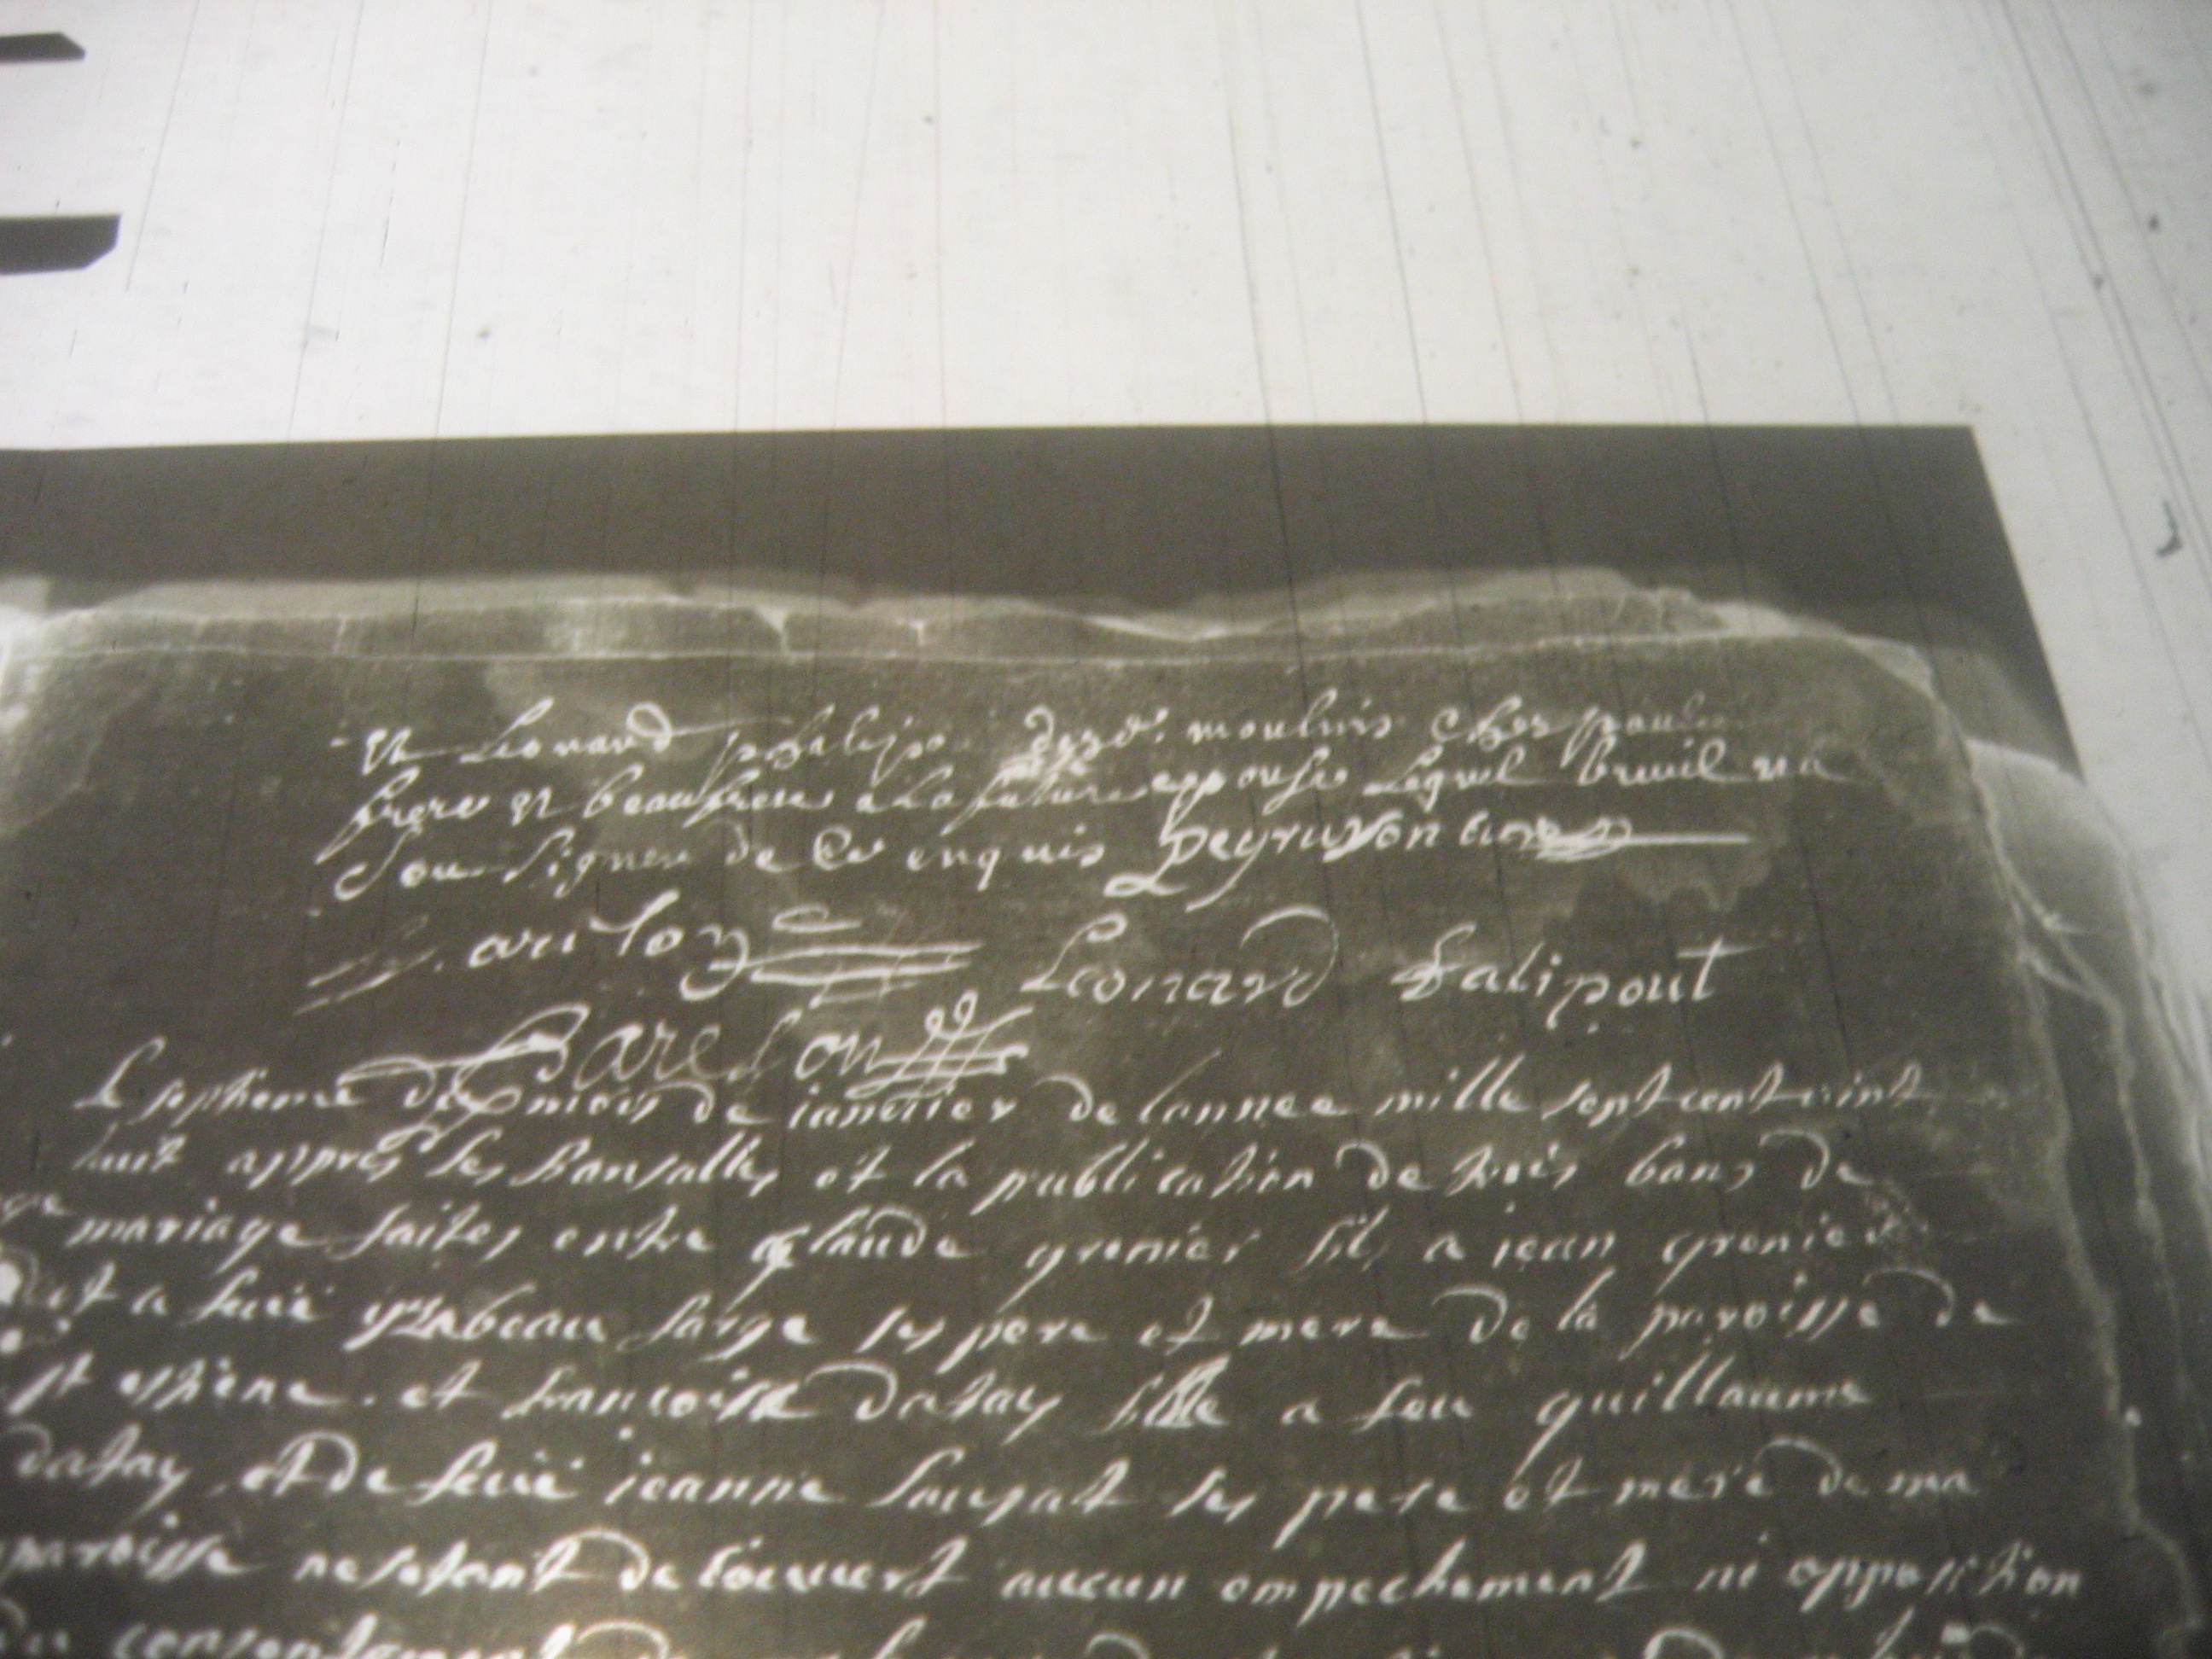 Et Leonard phalipo moulins Chez
frere et beaufrere a la future espouse Lequel breuil na
Sceu Signer de Ce enquis Peyrusson
Leonard Falipout
Baredon
Le septieme du mois de ianvier de lannee mille sept cent vint
huit appres les fiansalles et la publication de trois bans de
mariage faites entre glaude grenier fils a iean grenier
et a feüe yzabeau farge ses pere et mere de la paroisse de
st estiene . et françoise datay fille a feu guillaume
datay et de feüe ieanne sauzat ses pere et mere de ma
paroisse nestant decouvert aucun empechement ni opposition
du consentement